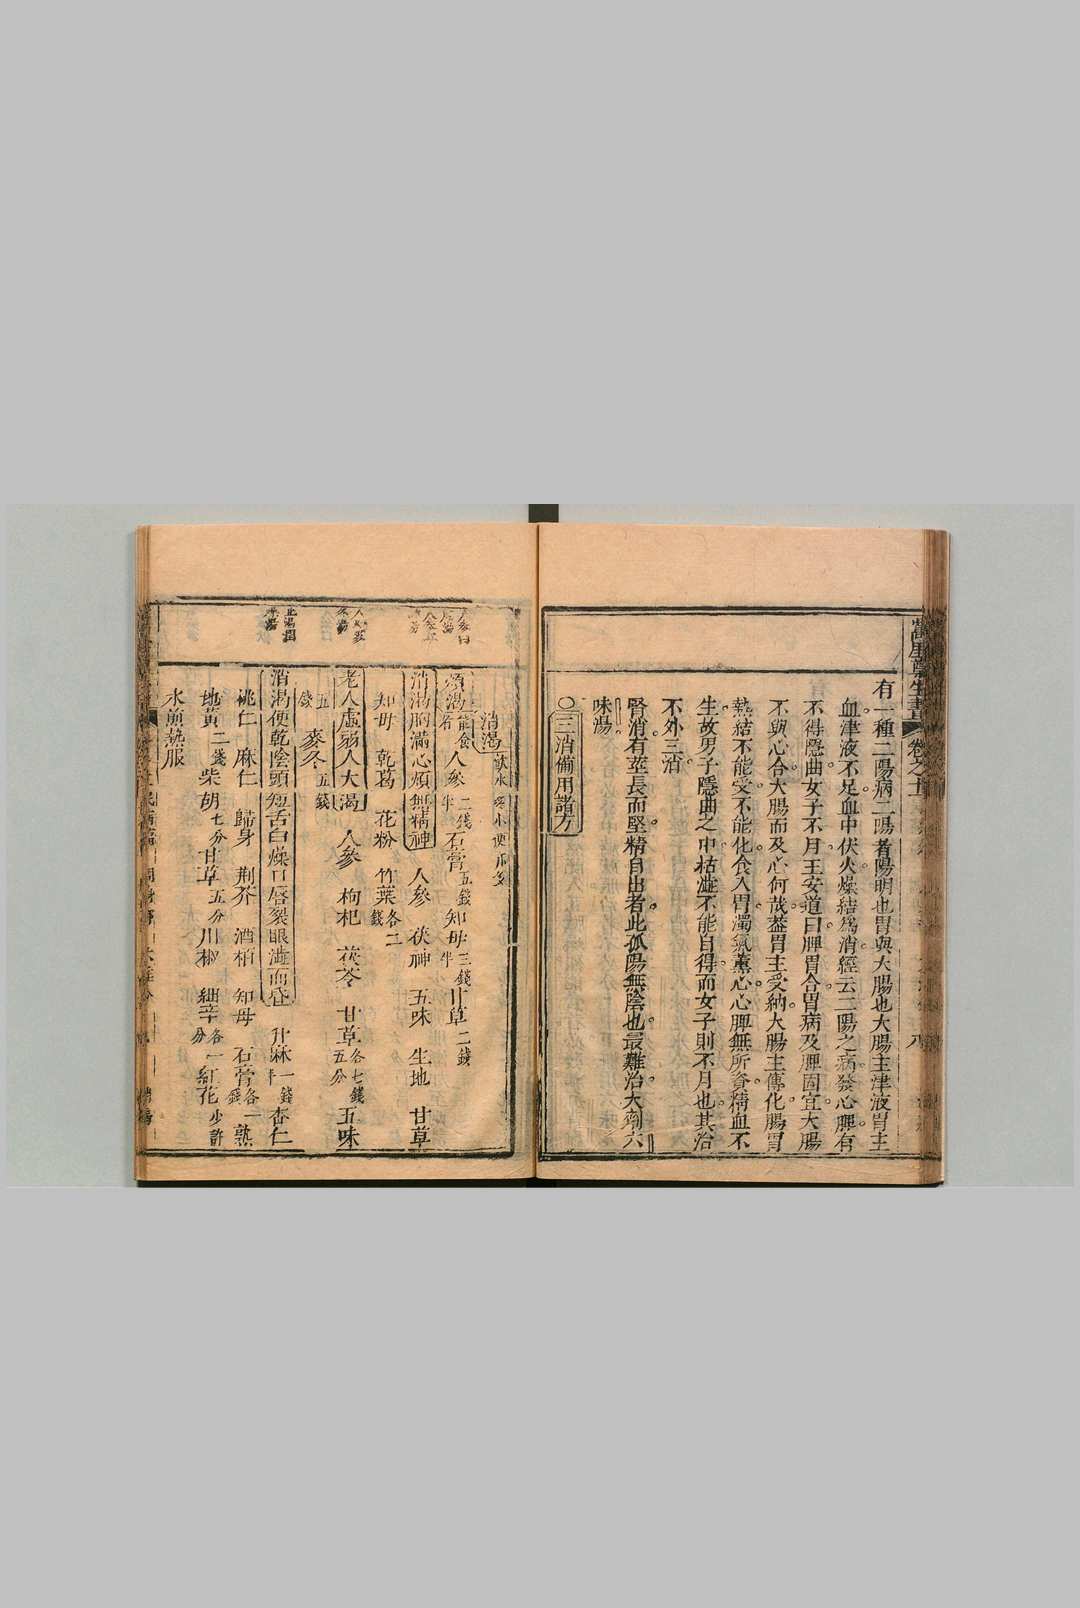 有一種二陽病二陽者陽明也胃與大腸也大腸主津液胃主
血津液不足血中伏火燥結爲消經云二陽之病發心脾有
不得隱曲女子不月王安道曰脾胃合胃病及脾固宜大腸
不與心合大腸而及心何哉蓋胃主受納大腸主傳化腸胃
熱結不能受不能化食入胃濁氣薰心心脾無所資精血不
生故男子隱曲之中枯澁不能自得而女子則不月也其治
不外三消
腎消有莖長而堅精自出者此孤陽無陰也最難治大劑六
味湯
〇三消備用諸方
消渴飲水多小便亦多
煩渴能食者人參二錢半石膏五錢知母三錢半甘草二錢
消渴胸滿心煩無精神 人參 茯神 五味 生地 甘草
知母 乾葛 花粉 竹葉各二錢
老人虛弱人大渴 人參 枸杞 茯苓 甘草各七錢五分五味
五錢 麥冬五錢
消渴便乾陰頭短舌白燥口唇裂眼澁而昏 升麻一錢半杏仁
桃仁 麻仁 歸身 荆芥 酒柏 知母 石膏各一錢熟
地黃二錢柴胡七分甘草五分川椒 細辛各一分紅花少許
水煎熱服